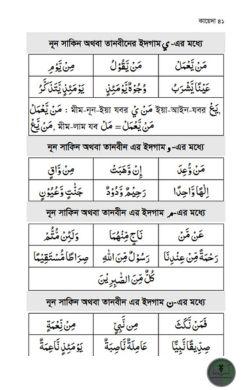 কায়েদা ৪১
নূন সাকিন অথবা তানবীনের ইদগাম ي-এর মধ্যে
مَنْ يَّعْمَلْ مَنْ يَّقُوْلُ مِنْ يَّوْمٍ
عَيْنًا يَّشْرَبُ وُجُوْهٌ يَّوْمَئِذٍ يَوْمَئِذٍ يَّتَذَكَّرُ
مَنْ يَّعْمَلْ : মীম-নূন-ইয়া যবর مَنْ يَّ ইয়া-আইন-যবর يَّعْ
مَنْ يَّعْ, মীম-লাম যব مَلْ = مَنْ يَّعْمَلْ
নূন সাকিন অথবা তানবীন এর ইদগাম و-এর মধ্যে
مَنْ وُّعِدَ اِنْ وَّهَبَتْ مِنْ وَّاقٍ
اِلٰهًا وَّاحِدًا رَحِيْمٌ وَّدُوْدٌ جَنّٰتٍ وَّعُيُوْنٍ
নূন সাকিন অথবা তানবীন এর ইদগাম م-এর মধ্যে
عَنْ مَّنْ نَاجٍ مِّنْهُمَا وَلَئِنْ مُّتُّمْ
رَحْمَةً مِّنْ عِنْدِنَا رَسُوْلٌ مِّنَ اللّٰهِ صِرَاطًا مُّسْتَقِيْمًا
كُلٌّ مِّنَ الصّٰبِرِيْنَ
নূন সাকিন অথবা তানবীন এর ইদগাম ن-এর মধ্যে
فَمَنْ نَّكَثَ مِنْ نَّبِيٍّ مِنْ نِّعْمَةٍ
صِدِّيْقًا نَّبِيًّا عَامِلَةٌ نَّاصِبَةٌ يَوْمَئِذٍ نَّاعِمَةٌ